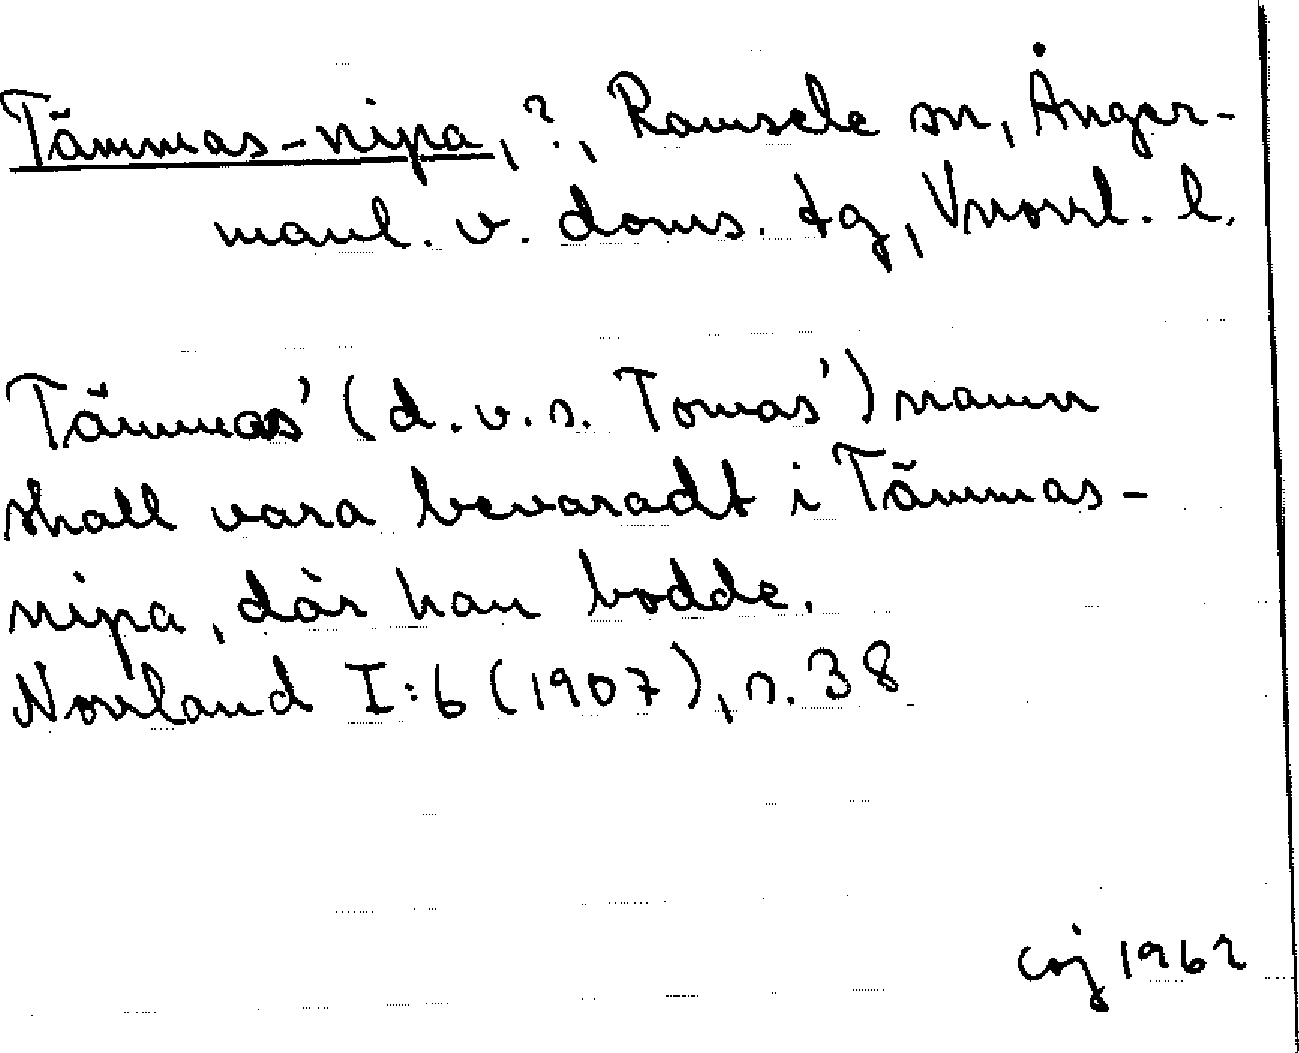 Tämmas-nipa, ?, Ramsele sn, Ånger-
manl. v. doms. tg, Vnorrl. l.
Tämmas' (d.v.s. Tomas') namn
skall vara bevaradt i Tämmas-
nipa, där han bodde.
Norrland I:6 (1907), s. 38
COJ 1962